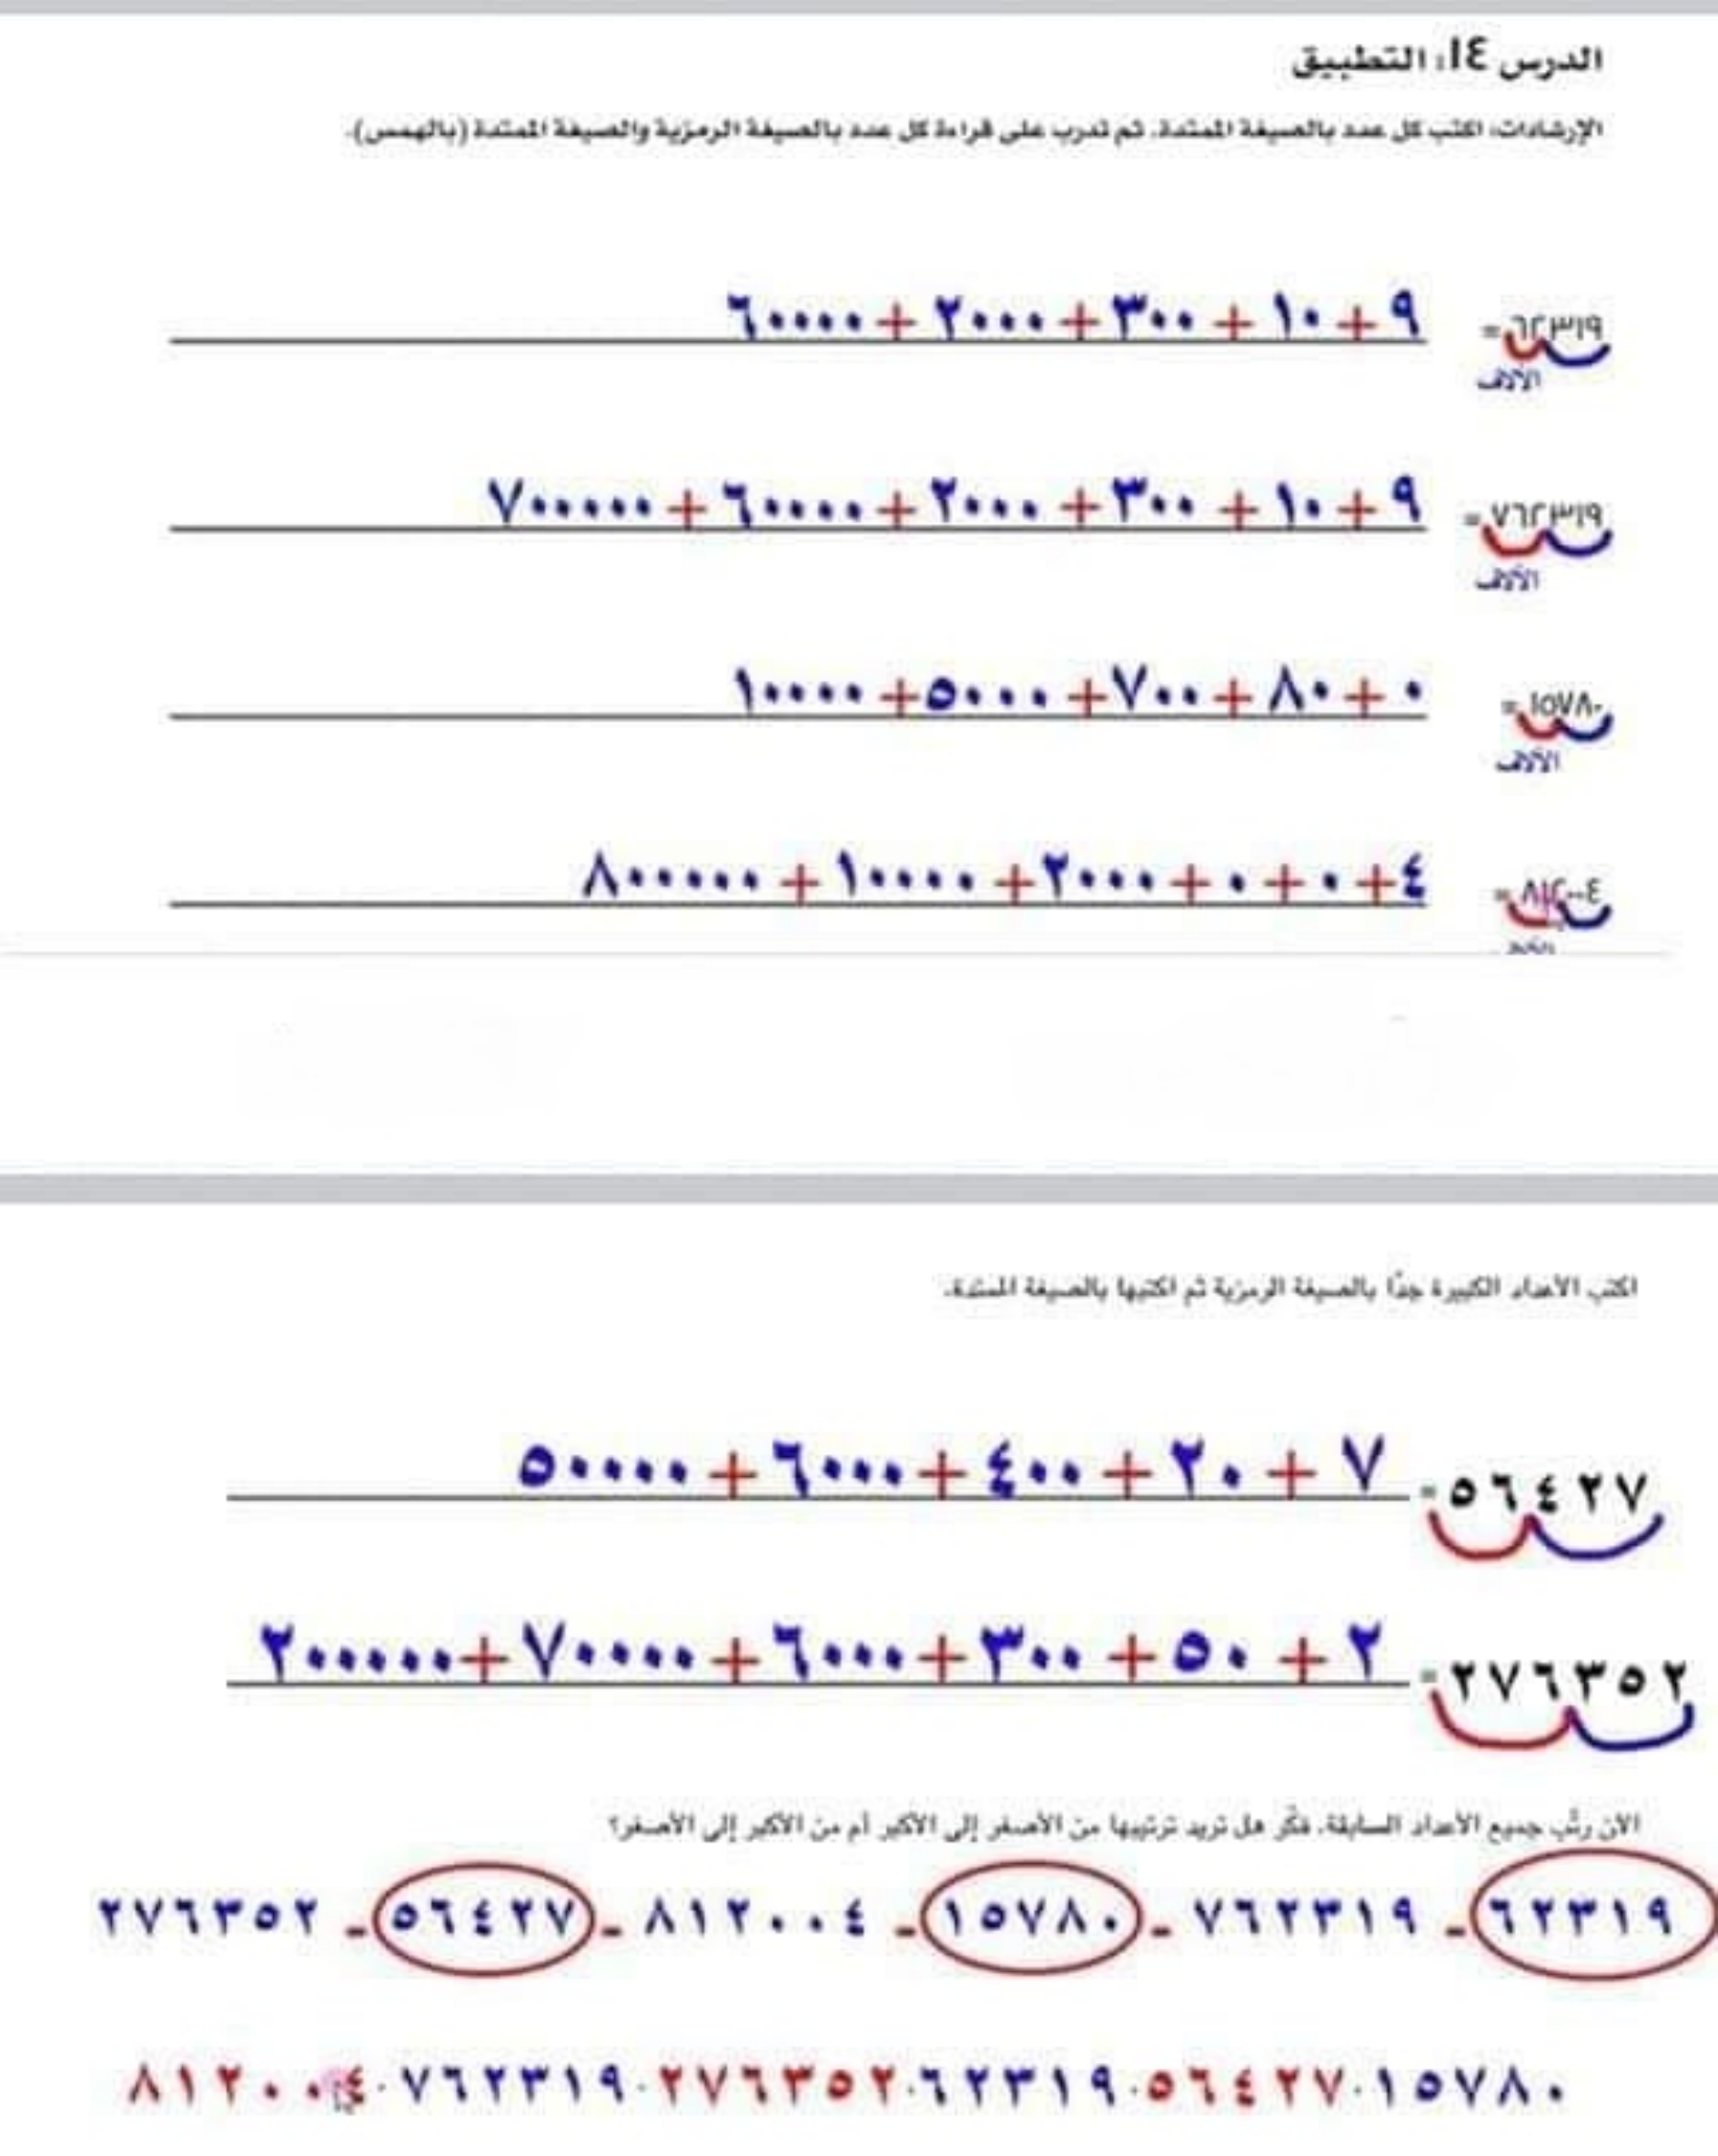 الدرس ١٤: التطبيق
الإرشادات: اكتب كل عدد بالصيغة الممتدة. ثم تدرب على قراءة كل عدد بالصيغة الرمزية والصيغة الممتدة (بالهمس).
٦٢٣١٩ = ٩ + ١٠ + ٣٠٠ + ٢٠٠٠ + ٦٠٠٠٠
الآلاف
٧٦٢٣١٩ = ٩ + ١٠ + ٣٠٠ + ٢٠٠٠ + ٦٠٠٠٠ + ٧٠٠٠٠٠
الآلاف
١٥٧٨٠ = ٠ + ٨٠ + ٧٠٠ + ٥٠٠٠ + ١٠٠٠٠
الآلاف
٨١٢٠٠٤ = ٤ + ٠ + ٠ + ٢٠٠٠ + ١٠٠٠٠ + ٨٠٠٠٠٠
الآلاف
اكتب الأعداد الكبيرة جدًا بالصيغة الرمزية ثم اكتبها بالصيغة الممتدة.
٥٦٤٢٧ = ٧ + ٢٠ + ٤٠٠ + ٦٠٠٠ + ٥٠٠٠٠
٢٧٦٣٥٢ = ٢ + ٥٠ + ٣٠٠ + ٦٠٠٠ + ٧٠٠٠٠ + ٢٠٠٠٠٠
الآن رتّب جميع الأعداد السابقة. فكّر هل تريد ترتيبها من الأصغر إلى الأكبر أم من الأكبر إلى الأصغر؟
٦٢٣١٩ - ٧٦٢٣١٩ - ١٥٧٨٠ - ٨١٢٠٠٤ - ٥٦٤٢٧ - ٢٧٦٣٥٢
١٥٧٨٠ . ٥٦٤٢٧ . ٦٢٣١٩ . ٢٧٦٣٥٢ . ٧٦٢٣١٩ . ٨١٢٠٠٤